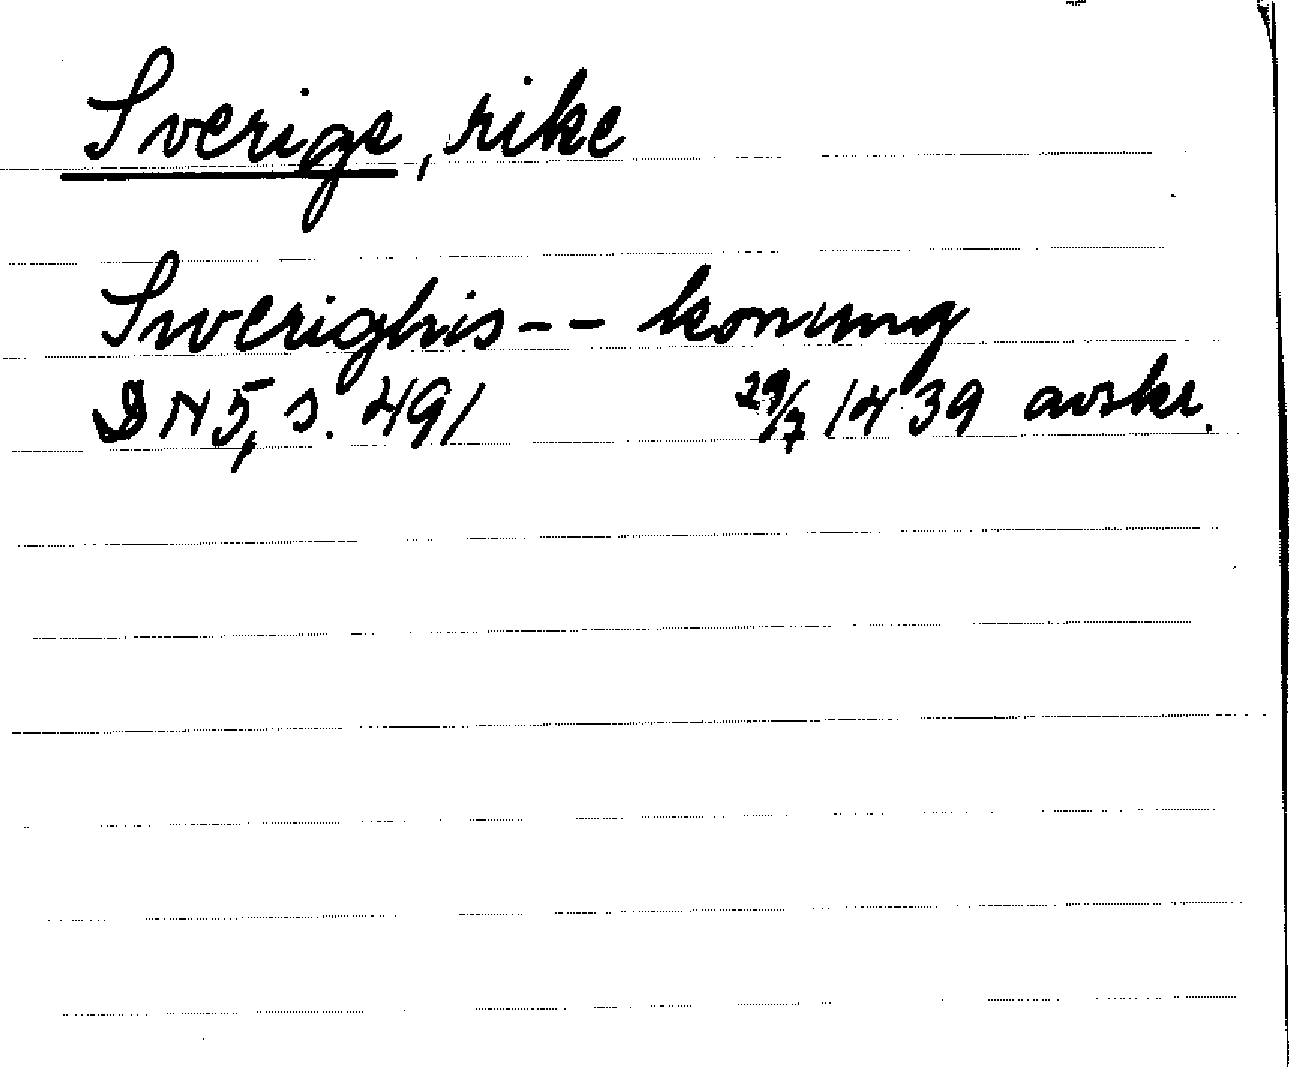 Sverige, rike
Swerighis -- konung
DN 5, s. 491 29/7 1439 avskr.